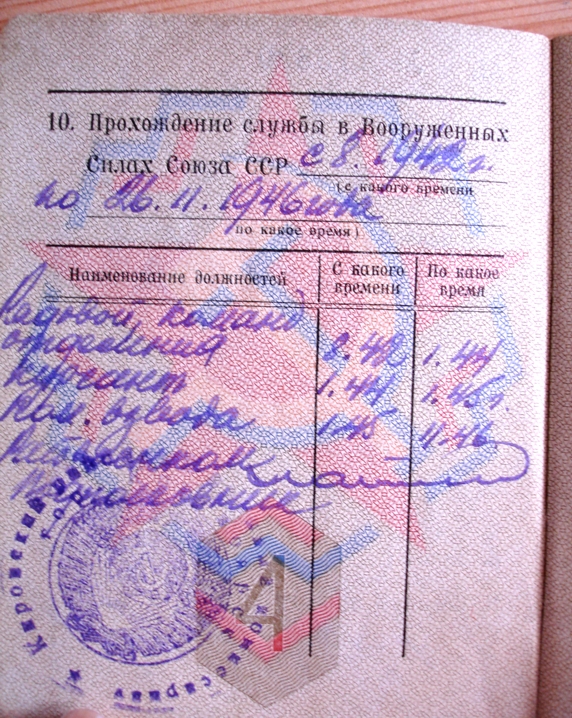 10. Прохождение службы в Вооруженных
Силах Союза ССР с 8. 1942 г.
(с какого времени
по 26. 11. 1946 года
(по какое время)
Наименование должностей
С какого времени
По какое время
Рядовой, команд
отделения 8.42 1.44
Курсант 1.44 1.45 г.
Ком. взвода 1.45 11.46
Райвоенком
Подполковник
Кировский
4